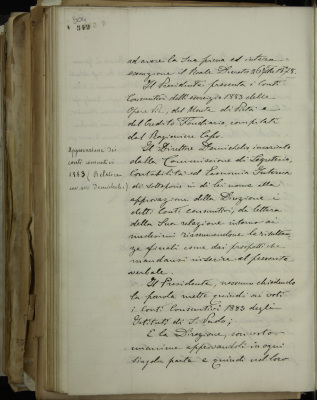 ad avere la sua piena ed intera
esecuzione il Reale Decreto
Il Presidente presenta i Conti
Consuntivi dell'esercizio 1883 delle
Opere Pie, del Monte di Pietà e
del Credito Fondiario, compilati
dal Ragioniere Capo.
Approvazione dei
conti consuntivi
1883 (Relatore
Il Direttore incaricato
dalla Commissione di Segreteria,
Contabilità ed Economia Interna
di sottoporre in di lei nome alla
approvazione della Direzione i
detti Conti consuntivi, dà lettura
della sua relazione intorno ai
medesimi riassumendone le risultan-
ze finali come dai prospetti che
mandansi inserire al presente
verbale.
Il Presidente, nessuno chiedendo
la parola mette quindi ai voti
i Conti Consuntivi 1883 degli
Istituti di S. Paolo;
E la Direzione, con voto
unanime approvandoli in ogni
singola parte e quindi nel loro